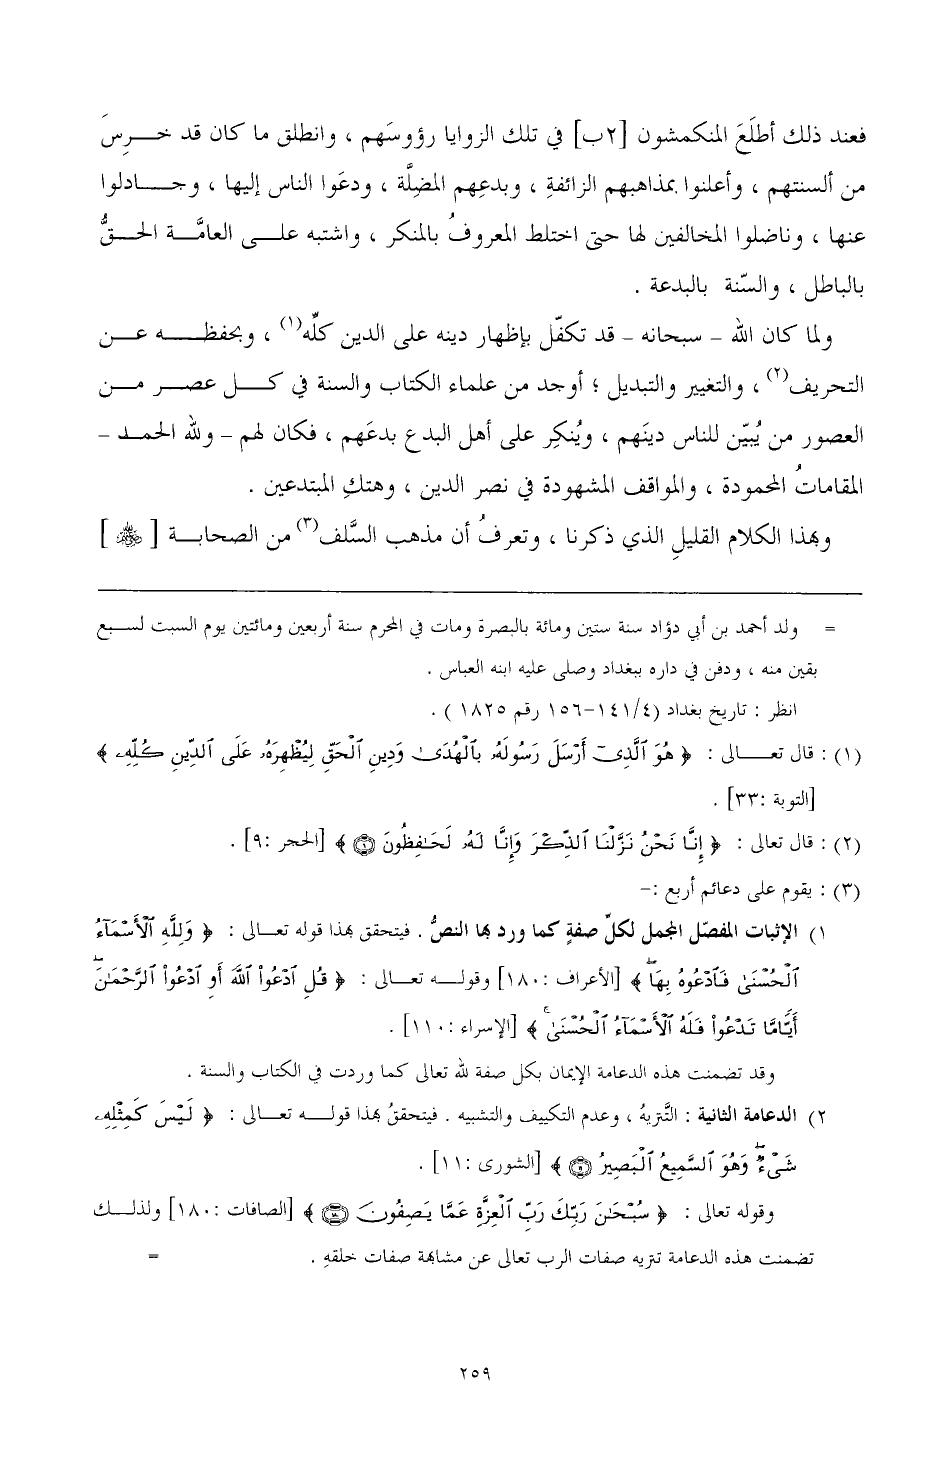 فعند ذلك أطلَعَ المنكمشون [٢ب] في تلك الزوايا رؤوسَهم ، وانطلق ما كان قد خرِسَ
من ألسنتهم ، وأعلنوا بمذاهبهم الزائفةِ ، وبدعِهم المضِلَّة ، ودعَوا الناس إليها ، وجادلوا
عنها ، وناضلوا المخالفين لها حتى اختلط المعروفُ بالمنكر ، واشتبه على العامَّة الحقُّ
بالباطل ، والسّنة بالبدعة .
ولما كان الله – سبحانه – قد تكفّل بإظهار دينه على الدين كلِّه(١) ، وبحفظه عن
التحريف(٢) ، والتغيير والتبديل ؛ أوجد من علماء الكتاب والسنة في كل عصر من
العصور من يُبيّن للناس دينَهم ، ويُنكِر على أهل البدع بدعَهم ، فكان لهم – ولله الحمد –
المقاماتُ المحمودة ، والمواقف المشهودة في نصر الدين ، وهتكِ المبتدعين .
وبهذا الكلام القليلِ الذي ذكرنا ، وتعرفُ أن مذهب السَّلف(٣) من الصحابة [ ﷺ ]
= ولد أحمد بن أبي دؤاد سنة ستين ومائة بالبصرة ومات في المحرم سنة أربعين ومائتين يوم السبت لسبع
بقين منه ، ودفن في داره ببغداد وصلى عليه ابنه العباس .
انظر : تاريخ بغداد (١٤١/٤–١٥٦ رقم ١٨٢٥ ) .
(١) : قال تعالى : ﴿ هُوَ ٱلَّذِىٓ أَرْسَلَ رَسُولَهُۥ بِٱلْهُدَىٰ وَدِينِ ٱلْحَقِّ لِيُظْهِرَهُۥ عَلَى ٱلدِّينِ كُلِّهِۦ ﴾
[التوبة :٣٣] .
(٢) : قال تعالى : ﴿ إِنَّا نَحْنُ نَزَّلْنَا ٱلذِّكْرَ وَإِنَّا لَهُۥ لَحَـٰفِظُونَ ۝٩ ﴾ [الحجر :٩] .
(٣) : يقوم على دعائم أربع :–
١) الإثبات المفصّل المجمل لكلّ صفةٍ كما ورد بها النصُّ . فيتحقق بهذا قوله تعالى : ﴿ وَلِلَّهِ ٱلْأَسْمَآءُ
ٱلْحُسْنَىٰ فَٱدْعُوهُ بِهَا ۖ ﴾ [الأعراف :١٨٠] وقوله تعالى : ﴿ قُلِ ٱدْعُوا۟ ٱللَّهَ أَوِ ٱدْعُوا۟ ٱلرَّحْمَـٰنَ ۖ
أَيًّا مَّا تَدْعُوا۟ فَلَهُ ٱلْأَسْمَآءُ ٱلْحُسْنَىٰ ۚ ﴾ [الإسراء :١١٠] .
وقد تضمنت هذه الدعامة الإيمان بكل صفة لله تعالى كما وردت في الكتاب والسنة .
٢) الدعامة الثانية : التَّنزيهُ ، وعدم التكييف والتشبيه . فيتحققُ بهذا قوله تعالى : ﴿ لَيْسَ كَمِثْلِهِۦ
شَىْءٌ ۖ وَهُوَ ٱلسَّمِيعُ ٱلْبَصِيرُ ۝١١ ﴾ [الشورى :١١] .
وقوله تعالى : ﴿ سُبْحَـٰنَ رَبِّكَ رَبِّ ٱلْعِزَّةِ عَمَّا يَصِفُونَ ۝١٨٠ ﴾ [الصافات :١٨٠] ولذلك
تضمنت هذه الدعامة تنزيه صفات الرب تعالى عن مشابهة صفات خلقهِ . =
٢٥٩